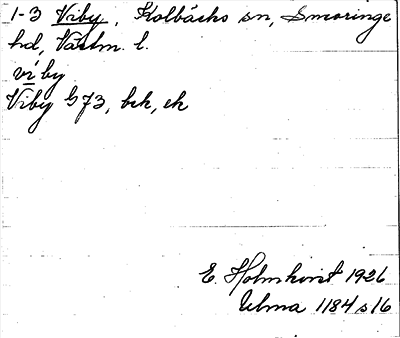 1-3 Viby, Kolbäcks sn, Snevringe
hd, Västm. l.
vi by
Viby G 73, bek, ek
E. Holmkvist 1926
Ulma 1184 s 16